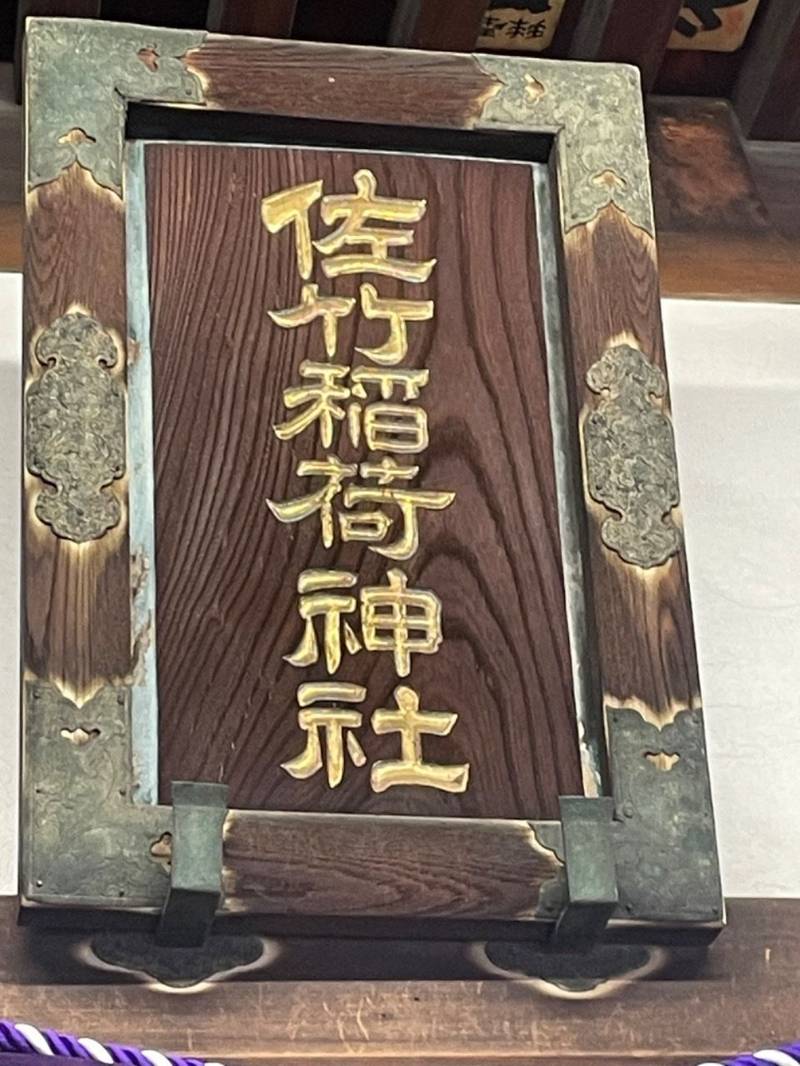 佐竹稲荷神社